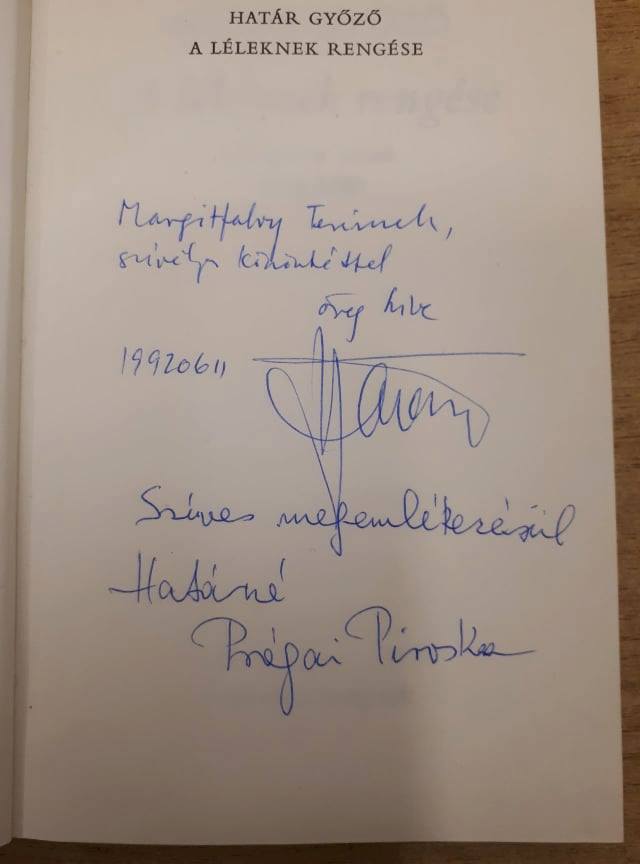 HATÁR GYŐZŐ
A LÉLEKNEK RENGÉSE
Margitfalvy Terinek,
szívélyes köszöntéssel
öreg híve
19920611
Határ
Szíves megemlékezésül
Határné
Prágai Piroska